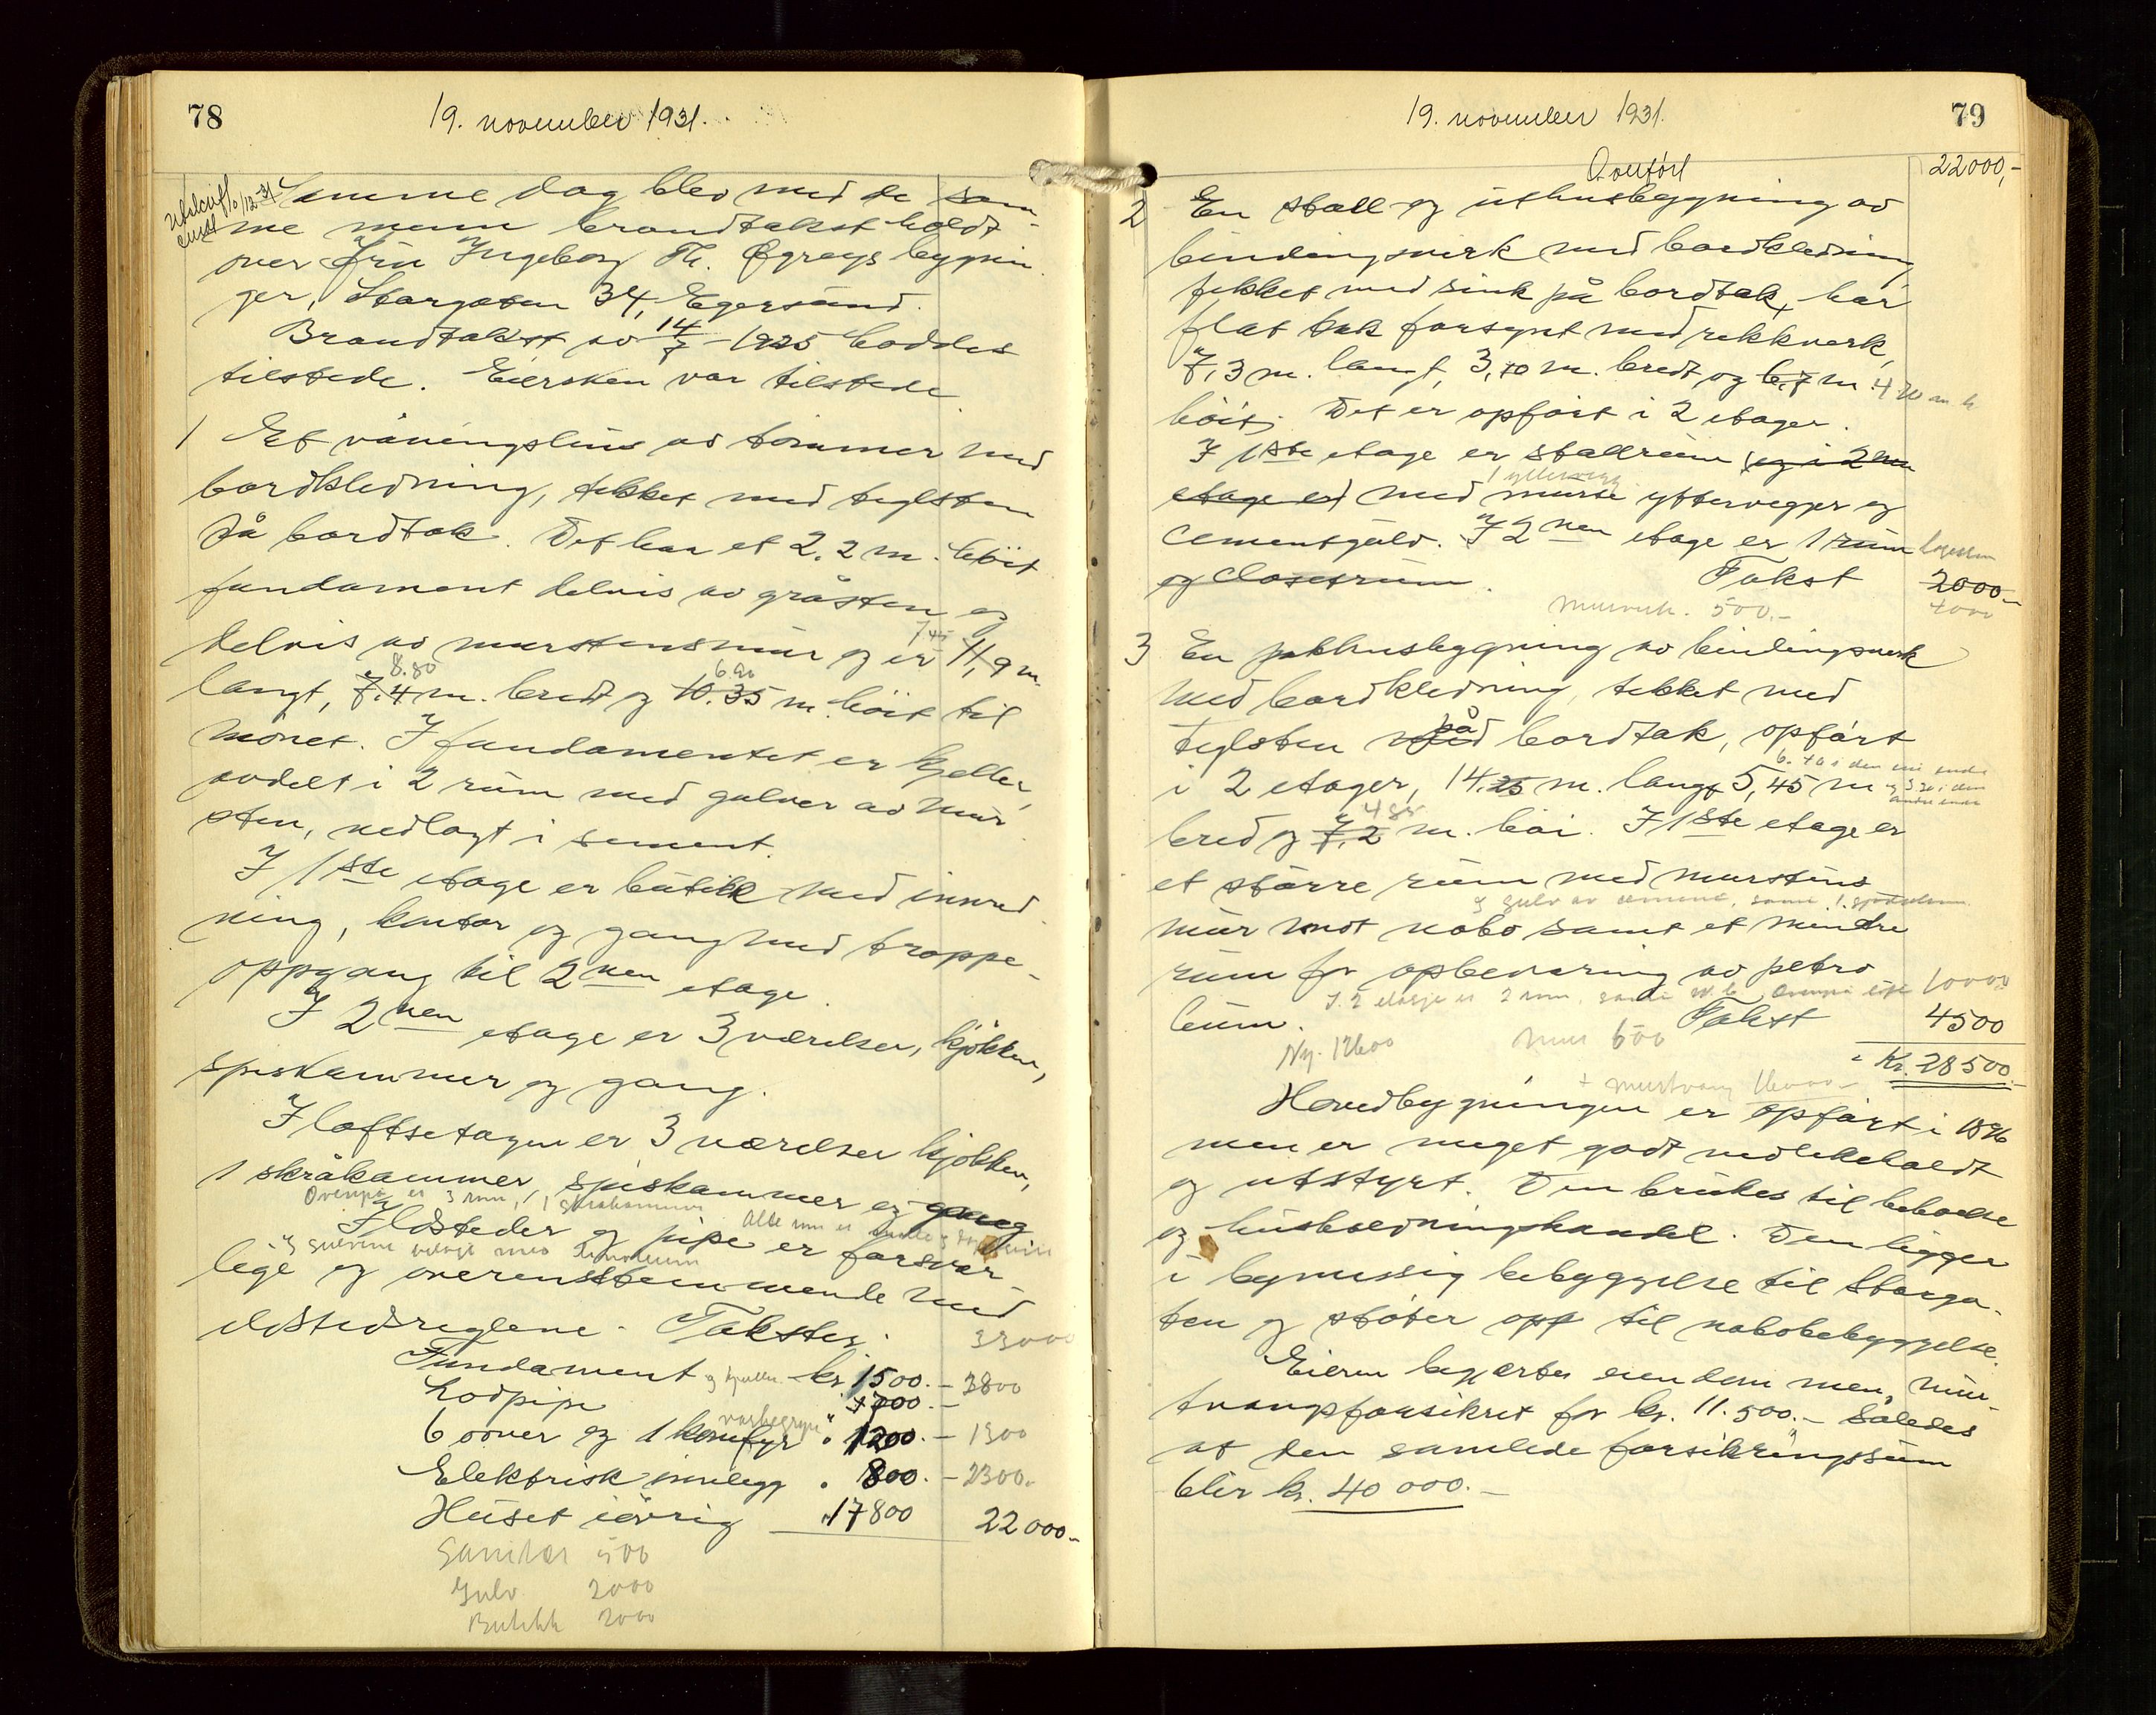 78
19. november 1931.
Samme dag blev med de sam-
me menn brandtakst holdt
over fru Ingeborg Th. Øgreys bygnin-
ger, Storgaten 34, Egersund.
Brandtakst av 14/7 - 1925 haddes
tilstede. Eiersken var tilstede
1 Et våningshus av tømmer med
bordkledning, tekket med teglsten
på bordtak. Det har et 2.2 m. høit
fundament delvis av gråsten og
7.45
delvis av murstensmur og er 11,9 m.
8.80 6.20
langt, 7.4 m. bredt og 10.35 m. høit til
mønet. I fundamentet er kjeller,
avdelt i 2 rum med gulver av mur
sten, nedlagt i sement.
I 1ste etage er butikk med innred
ning, kontor og gang med troppe-
oppgang til 2nen etage.
I 2nen etage er 3 værelser, kjøkken,
spiskammer og gang.
I loftsetagen er 3 værelser kjøkken,
1 skråkammer, spiskammer og gang
Ovenpå er 3 rum, 1 skråkammer
Alle rum er
Ildsteder og pipe er forsvar-
og gulvene belagt med linoleum
lige og overensstemmende med
ildstedsreglene. Takster:
33000
Fundament og kjeller kr. 1500.- 3800
Lodpipe 700.-
6 ovner og 1 komfyr " 1200.- 1300
Elektrisk innlegg " 800.- 2300.-
Huset iøvrig 17800 22000.-
Sanitær 500
Gulv 2000
Butikk 2000
79
19. november 1931.
Overført 22000,-
2 En stall og uthusbygning av
bindingsverk med bordkledning
tekket med sink på bordtak, har
flat tak forsynt med rekkverk,
7,3 m. langt, 3,10 m. bredt og 6,7 m. 4.20
høit. Det er opført i 2 etager.
I 1ste etage er stallrum (og i 2nen
1 yttervegg
etage er) med murte yttervegger og
cementgulv. I 2nen etage er 1 rum
og closetrum. Takst 2000.-
murverk. 500.- 4000
3 En pakhusbygning av bindingsverk
med bordkledning, tekket med
på
teglsten med bordtak, opført
6.40 i den ene ende
i 2 etager, 14.25 m. lang, 5,45 m og 3.20 i den
andre ende
4.85
bred og 7,2 m. høi. I 1ste etage er
et større rum med murstens
og gulv av cement, samt 1
mur mot nabo samt et mindre
rum for opbevaring av petro
I 2 etasje er 2 rum, 10000
leum. Takst 4500
Ny. 12600 mur 600
= Kr. 28500.-
+ murtvang 16000.-
Hovedbygningen er opført i 1896
men er meget godt vedlikeholdt
og utstyrt. Den brukes til beboelse
og husholdningshandel. Den ligger
i bymessig bebyggelse til Storga-
ten og støter opp til nabobebyggelse.
Eieren begjærtes eiendommen mur-
tvangsforsikret for kr. 11.500.- således
at den samlede forsikringssum
blir kr. 40 000.-